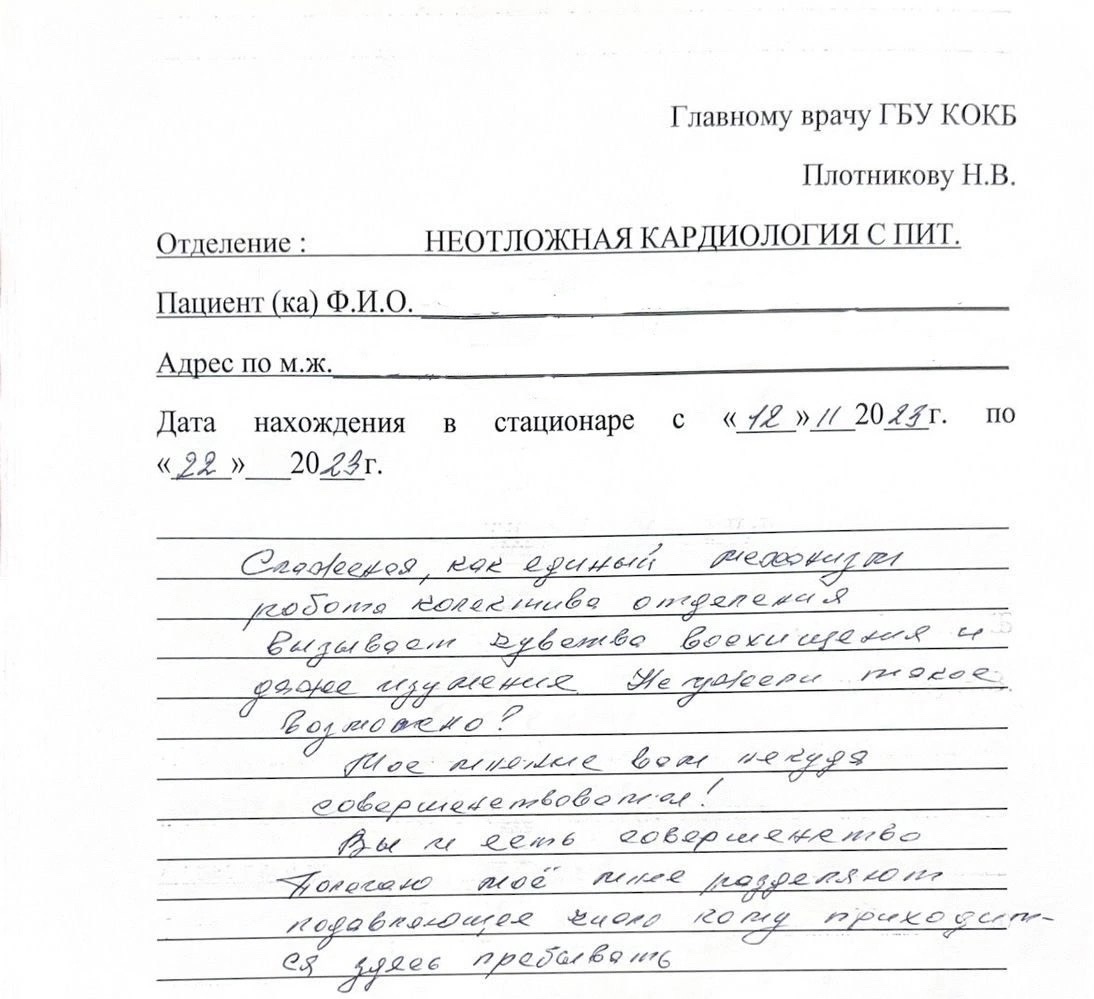 Главному врачу ГБУ КОКБ
Плотникову Н.В.
Отделение : НЕОТЛОЖНАЯ КАРДИОЛОГИЯ С ПИТ.
Пациент (ка) Ф.И.О.
Адрес по м.ж.
Дата нахождения в стационаре с «12» 11 2023г. по
«22» 2023г.
Слаженая, как единый механизм
робота колектива отделения
Вызывает чувства восхищения и
даже изумления Неужели такое
возможно?
Мое мнение вам некуда
совершенствоваться!
Вы и есть совершенство
Полагаю моё мне разделяют
подавляющее число кому приходит-
ся здесь пребывать